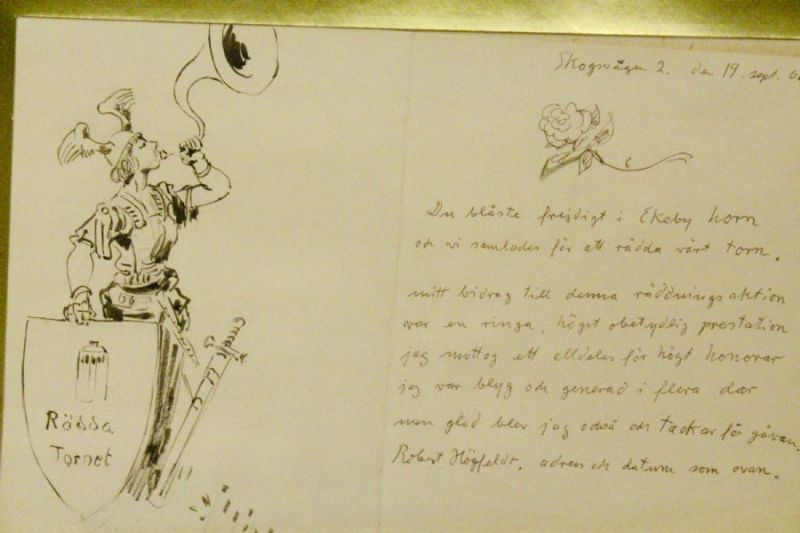 Skogsvägen 2. den 19. sept. 6
Du blåste frejdigt i Ekeby horn
och vi samlades för att rädda vårt torn.
mitt bidrag till denna räddningsaktion
var en ringa, högst obetydlig prestation
jag mottog ett alldeles för högt honorar
jag var blyg och generad i flera dar
men glad blev jag också och tackar för gåvan.
Robert Högfeldt. adress och datum som ovan.
Rädda
Tornet